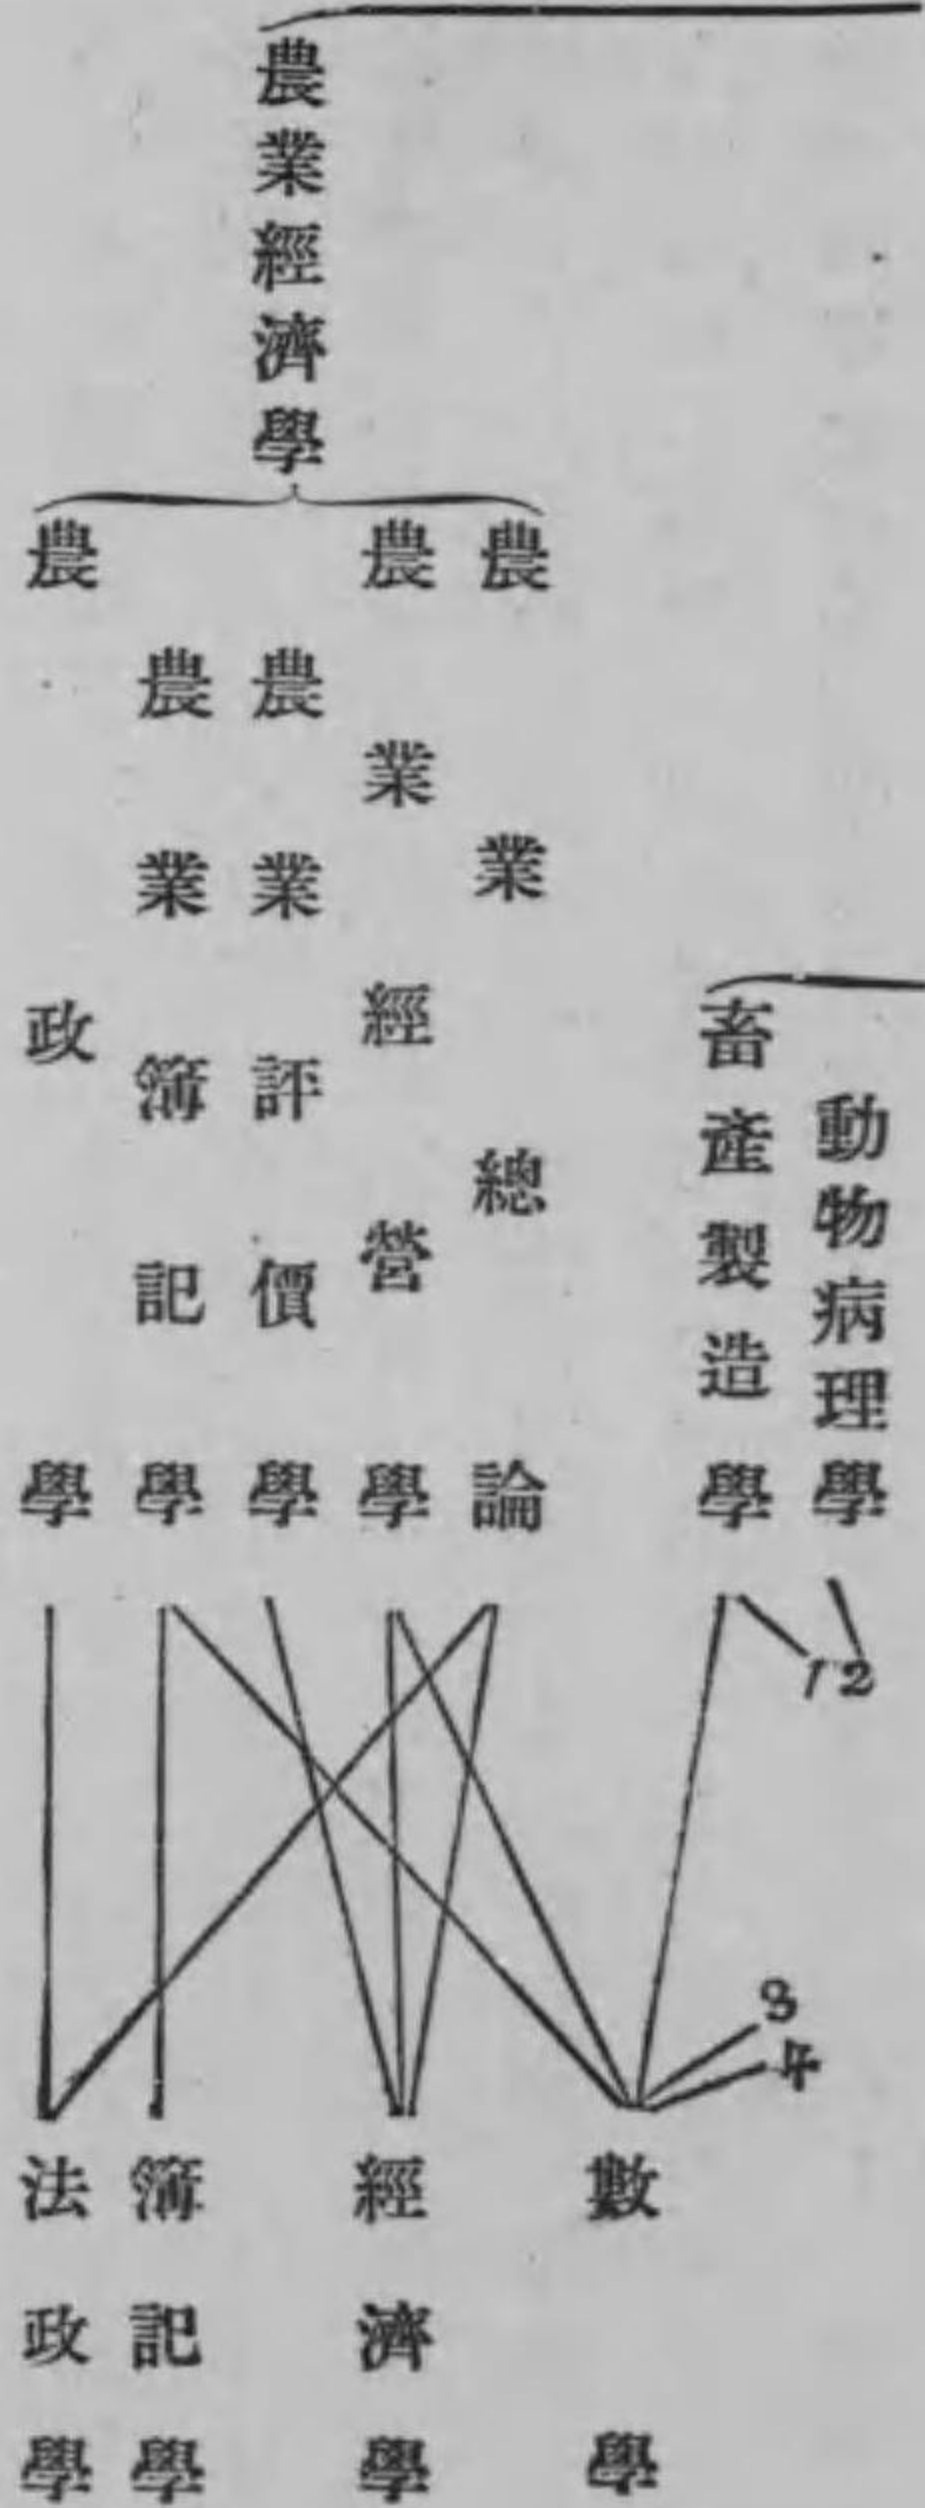 動物病理學
畜產製造學
農業經濟學
農業總論
農業經營學
農業評價學
農業簿記學
農政學
1 2
3
4
數學
經濟學
簿記學
法政學